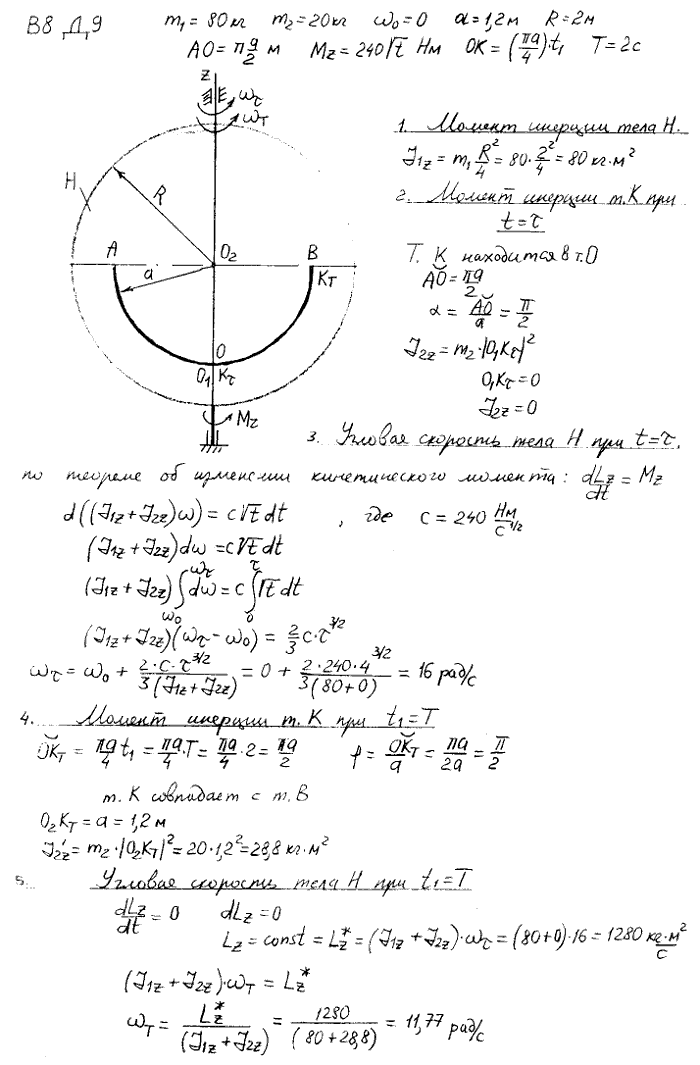 В8 Д9 m₁ = 80 кг m₂ = 20 кг ω₀ = 0 a = 1,2 м R = 2 м
AO = πa/2 м Mz = 240√t Нм OK = (πa/4)·t₁ T = 2 с
z
E ωτ
ωT
H
R
A O₂ B
a Kт
O
O₁ Kτ
Mz
1. Момент инерции тела Н.
J₁z = m₁ R²/4 = 80·2²/4 = 80 кг·м²
2. Момент инерции т.К при
t = τ
Т. К находится в т.О
AO = πa/2
α = AO/a = π/2
J₂z = m₂·|O₁Kτ|²
O₁Kτ = 0
J₂z = 0
3. Угловая скорость тела Н при t = τ.
по теореме об изменении кинетического момента: dLz/dt = Mz
d((J₁z + J₂z)ω) = c√t dt , где c = 240 Нм/с^1/2
(J₁z + J₂z)dω = c√t dt
(J₁z + J₂z) ∫ω₀^ωτ dω = c ∫0^τ √t dt
(J₁z + J₂z)(ωτ − ω₀) = 2/3 c·τ^3/2
ωτ = ω₀ + 2·c·τ^3/2 / 3(J₁z + J₂z) = 0 + 2·240·4^3/2 / 3(80+0) = 16 рад/с
4. Момент инерции т. К при t₁ = T
OKт = πa/4 t₁ = πa/4·T = πa/4·2 = πa/2 φ = OKт/a = πa/2a = π/2
т. К совпадает с т. В
O₂Kт = a = 1,2 м
J₂z' = m₂·|O₂Kт|² = 20·1,2² = 28,8 кг·м²
5. Угловая скорость тела Н при t₁ = T
dLz/dt = 0 dLz = 0
Lz = const = Lz* = (J₁z + J₂z)·ωτ = (80+0)·16 = 1280 кг·м²/с
(J₁z + J₂z)·ωT = Lz*
ωT = Lz*/(J₁z + J₂z) = 1280/(80 + 28,8) = 11,77 рад/с